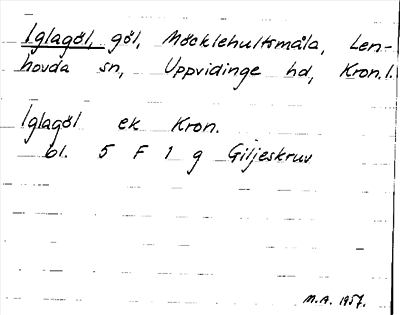 Iglagöl, göl, Möcklehultsmåla, Len-
hovda sn, Uppvidinge hd, Kron.l.
Iglagöl ek Kron.
bl. 5 F 1 g Giljeskruv
M.A. 1957.